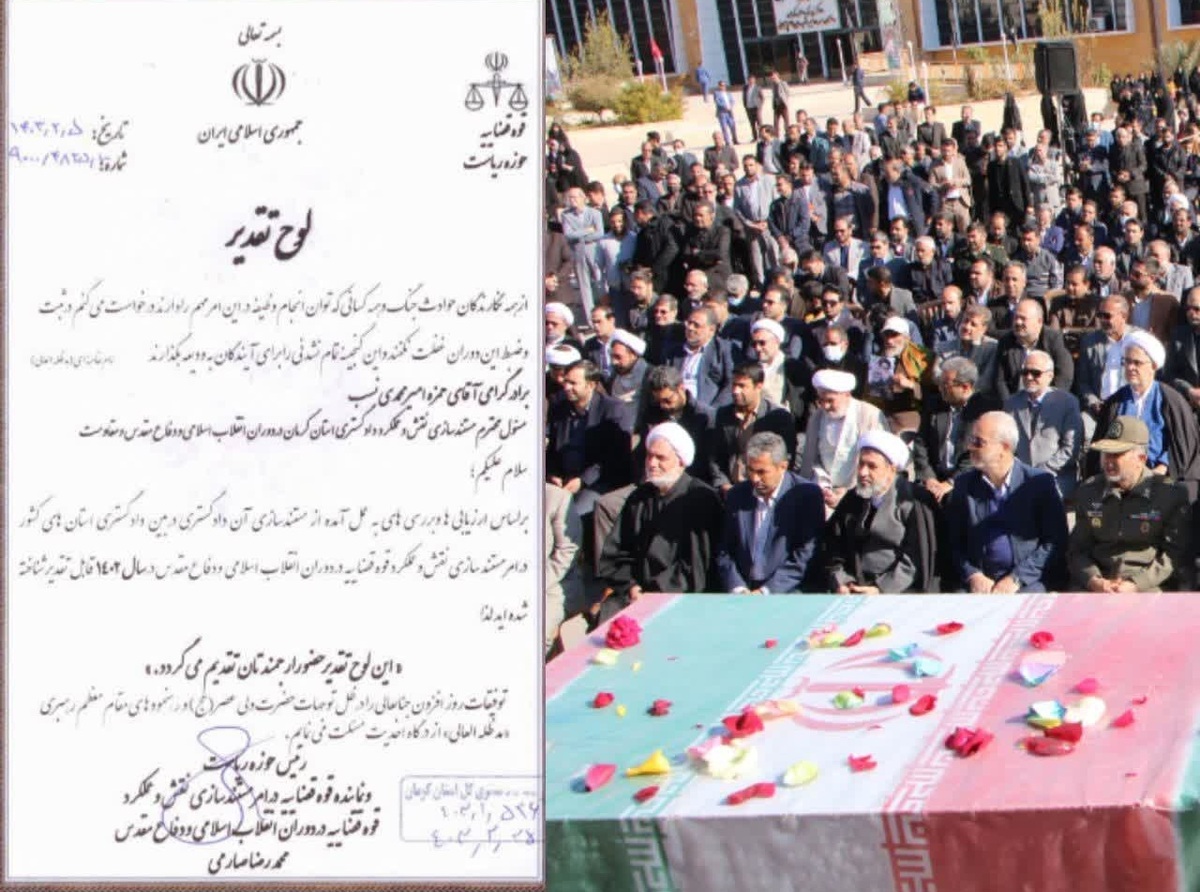 بسمه تعالی
جمهوری اسلامی ایران
قوه قضاییه
حوزه ریاست
تاریخ: ۱۴۰۳٫۲٫۵
شماره:
لوح تقدیر
از همه نگارندگان حوادث جنگ و همه کسانی که توان انجام وظیفه در این امر مهم را دارند درخواست می کنم در ثبت
و ضبط این دوران غفلت نکنند و این گنجینه تمام نشدنی را برای آیندگان به ودیعه بگذارند
برادر گرامی آقای حمزه امیرمحمدی نسب
مسئول محترم مستندسازی نقش و عملکرد دادگستری استان کرمان در دوران انقلاب اسلامی و دفاع مقدس و مقاومت
سلام علیکم؛
براساس ارزیابی ها و بررسی های به عمل آمده از مستندسازی آن دادگستری در بین دادگستری استان های کشور
در امر مستندسازی نقش و عملکرد قوه قضاییه در دوران انقلاب اسلامی و دفاع مقدس در سال ۱۴۰۲ قابل تقدیر شناخته
شده اید لذا
«این لوح تقدیر حضور ارجمندتان تقدیم می گردد.»
توفیقات روز افزون جنابعالی را در ظل توجهات حضرت ولی عصر(عج) و رهنمودهای مقام معظم رهبری
«مدظله العالی» از درگاه احدیت مسئلت می نمایم.
رئیس حوزه ریاست
و نماینده قوه قضاییه در امر مستندسازی نقش و عملکرد
قوه قضاییه در دوران انقلاب اسلامی و دفاع مقدس
محمدرضا صارمی
کل استان کرمان